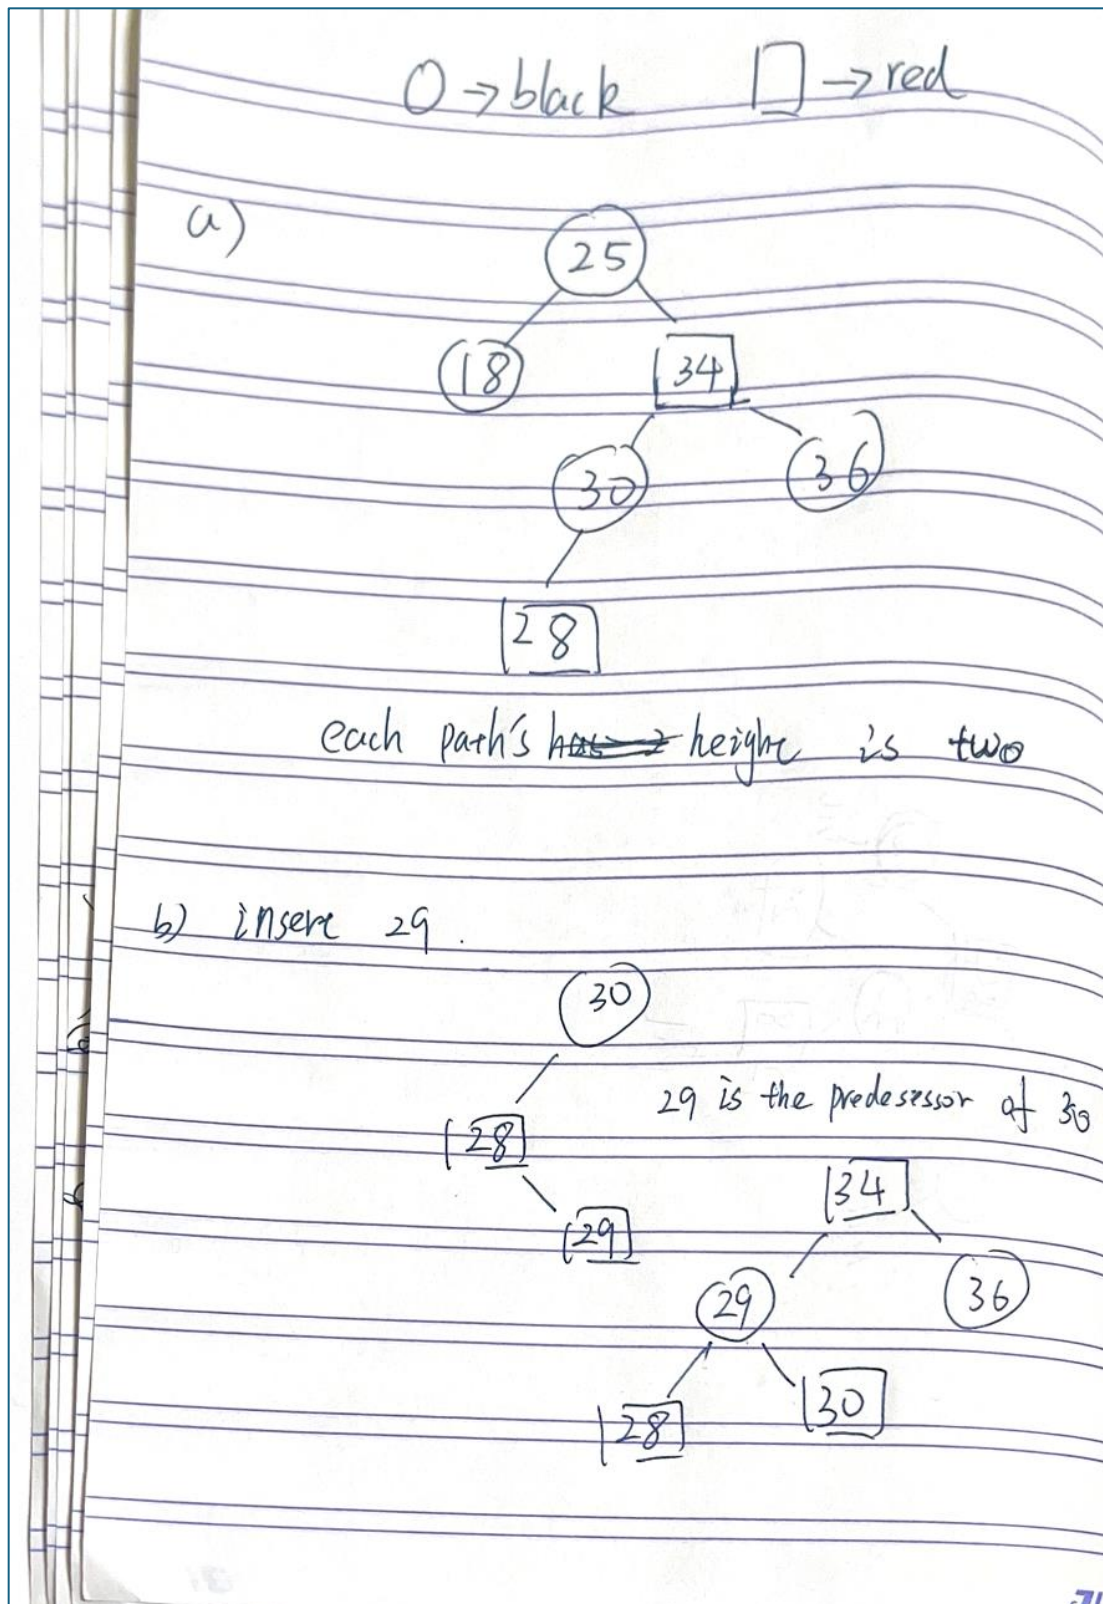 O → black □ → red
a)
25
18 34
30 36
28
each path's height is two
b) insert 29.
30
29 is the predesessor of 30
28
34
29
29 36
28 30